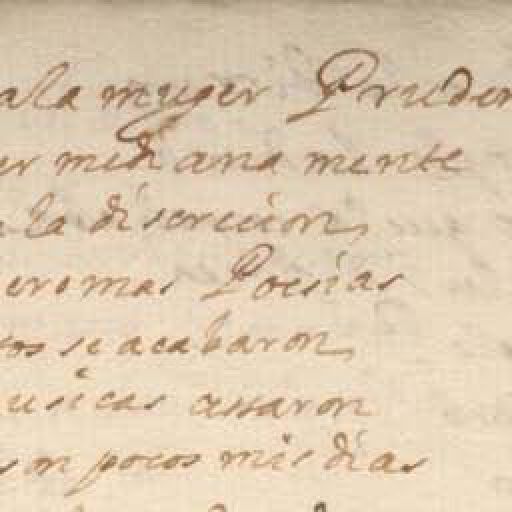 ala muger Pruden
er mediana mente
la discrecion,
eromas Poesias
tos se acabaron,
usicas cessaron
son pocos mis dias